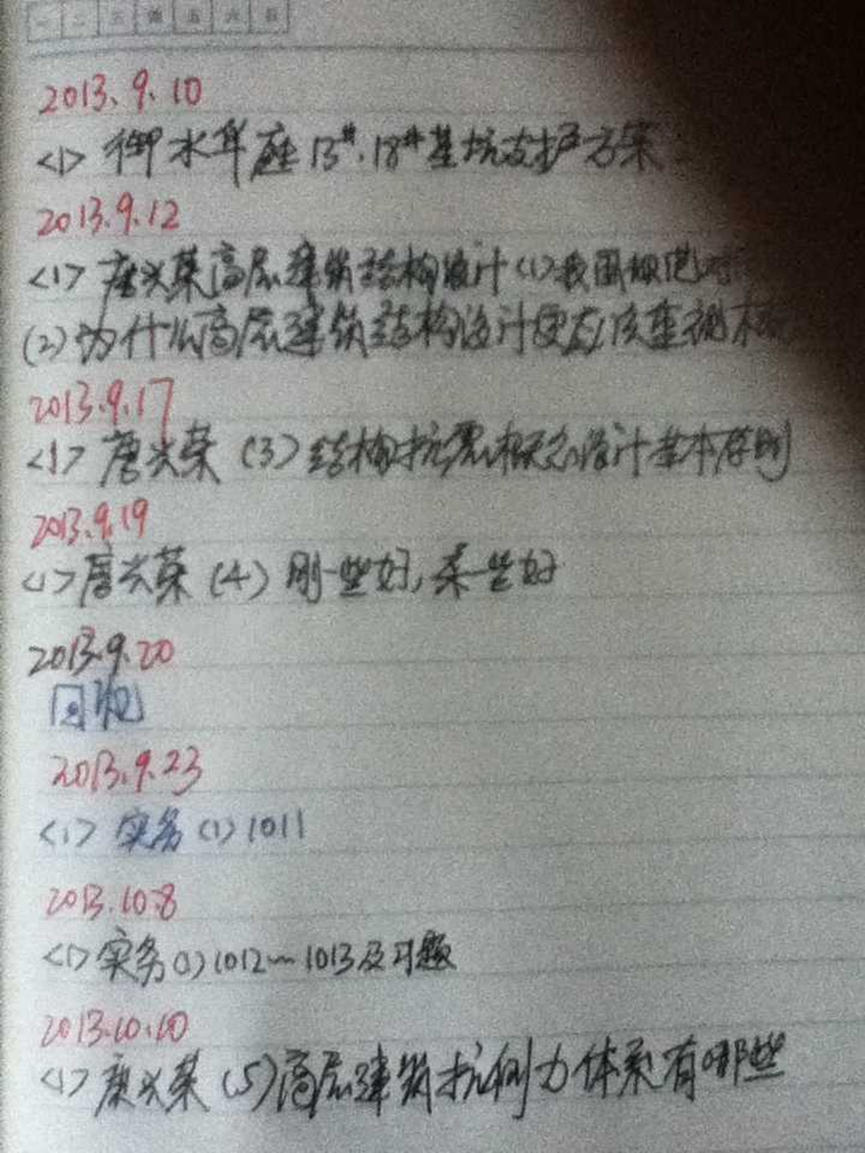 一 二 三 四 五 六 日
2013.9.10
<1> 御水华座13#.18#基坑支护方案
2013.9.12
<1> 唐兴荣高层建筑结构设计(1)我国规范对
(2)为什么高层建筑结构设计更应该重视
2013.9.17
<1> 唐兴荣 (3)结构抗震概念设计基本原则
2013.9.19
<1> 唐兴荣 (4) 刚一些好,柔一些好
2013.9.20
2013.9.23
<1> 实务 (1) 1011
2013.10.8
<1> 实务(1) 1012~1013及习题
2013.10.10
<1> 唐兴荣 (5)高层建筑抗侧力体系有哪些